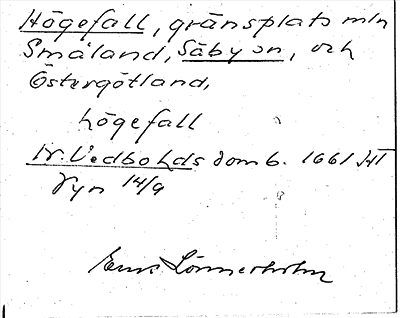 Högefall, gränsplats mln
Småland, Säby sn, och
Östergötland.
högefall
N. Vedbo hds domb. 1661 HT
Syn 14/9
Erns Lönnerholm